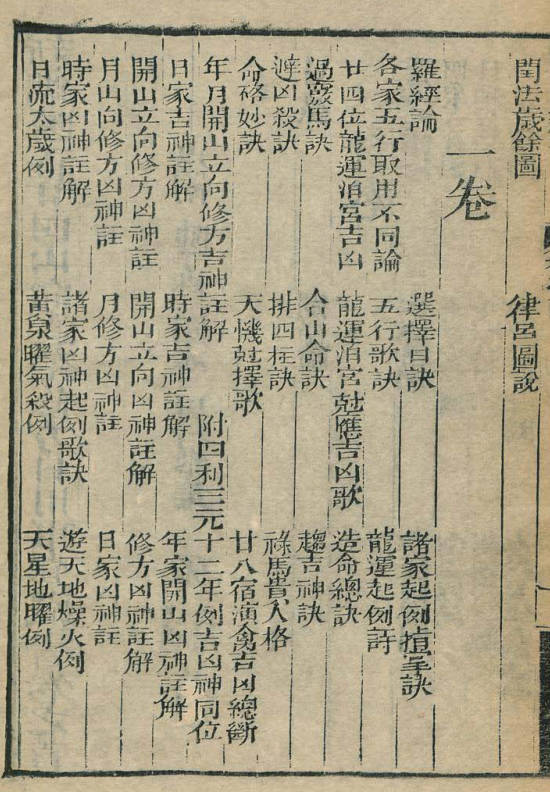 閏法歲餘圖 律呂圖說
一卷
羅經論 選擇日訣 諸家起例指掌訣
各家五行取用不同論 五行歌訣 龍運起例詩
廿四位龍運泊宮吉凶 龍運泊宮尅應吉凶歌 造命總訣
馬訣 合山命訣 趨吉神訣
避凶殺訣 排四柱訣 祿馬貴人格
命硌妙訣 天機尅擇歌 廿八宿演禽吉凶總斷
年月開山立向修方吉神註解 附四利三元十二年例吉凶神同位
日家吉神註解 時家吉神註解 年家開山凶神註解
開山立向修方凶神註 開山立向凶神註解 修方凶神註解
月山向修方凶神註 月修方凶神註 日家凶神註
時家凶神註解 諸家凶神起例歌訣 遊天地燥火例
日流太歲例 黃泉曜氣殺例 天星地曜例